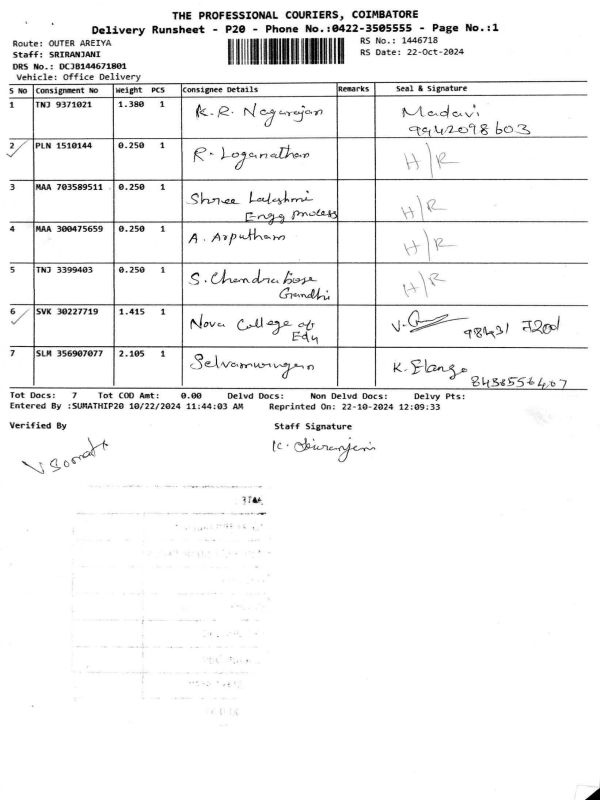 THE PROFESSIONAL COURIERS, COIMBATORE
Delivery Runsheet - P20 - Phone No.:0422-3505555 - Page No.:1
Route: OUTER AREIYA
RS No.: 1446718
Staff: SRIRANJANI
RS Date: 22-Oct-2024
DRS No.: DCJB144671801
Vehicle: Office Delivery
S No Consignment No Weight PCS Consignee Details Remarks Seal & Signature
1 TNJ 9371021 1.380 1 K.R. Nagarajan Madavi
9942098603
2 PLN 1510144 0.250 1 R. Loganathan H/R
3 MAA 703589511 0.250 1 Shree Lakshmi H/R
Engg
4 MAA 300475659 0.250 1 A. Arputham H/R
5 TNJ 3399403 0.250 1 S. Chandra bose H/R
Gandhi
6 SVK 30227719 1.415 1 Nova College of V.
Edu
7 SLM 356907077 2.105 1 Selvamurugan K. Elango
Tot Docs: 7 Tot COD Amt: 0.00 Delvd Docs: Non Delvd Docs: Delvy Pts:
Entered By :SUMATHIP20 10/22/2024 11:44:03 AM Reprinted On: 22-10-2024 12:09:33
Verified By Staff Signature
K. Sriranjani